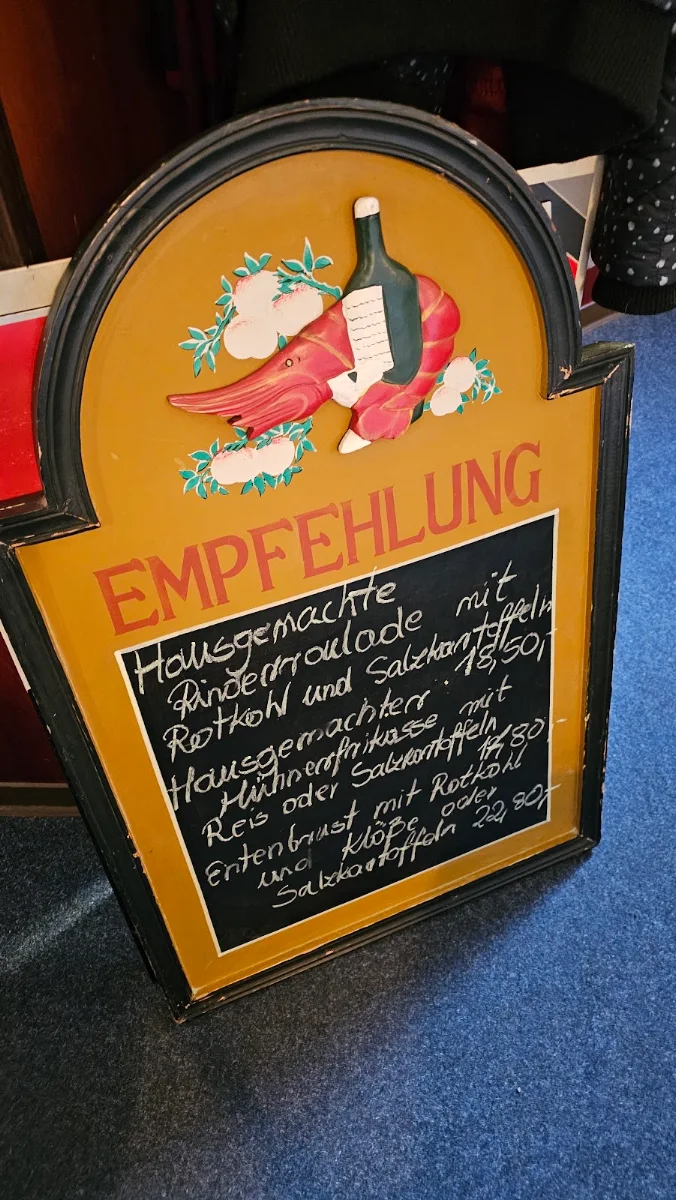 EMPFEHLUNG
Hausgemachte
Rinderroulade mit
Rotkohl und Salzkartoffeln
18,50,-
Hausgemachter
Hühnerfrikasse mit
Reis oder Salzkartoffeln
17,80.-
Entenbrust mit Rotkohl
und Klöße oder
Salzkartoffeln 22,80,-